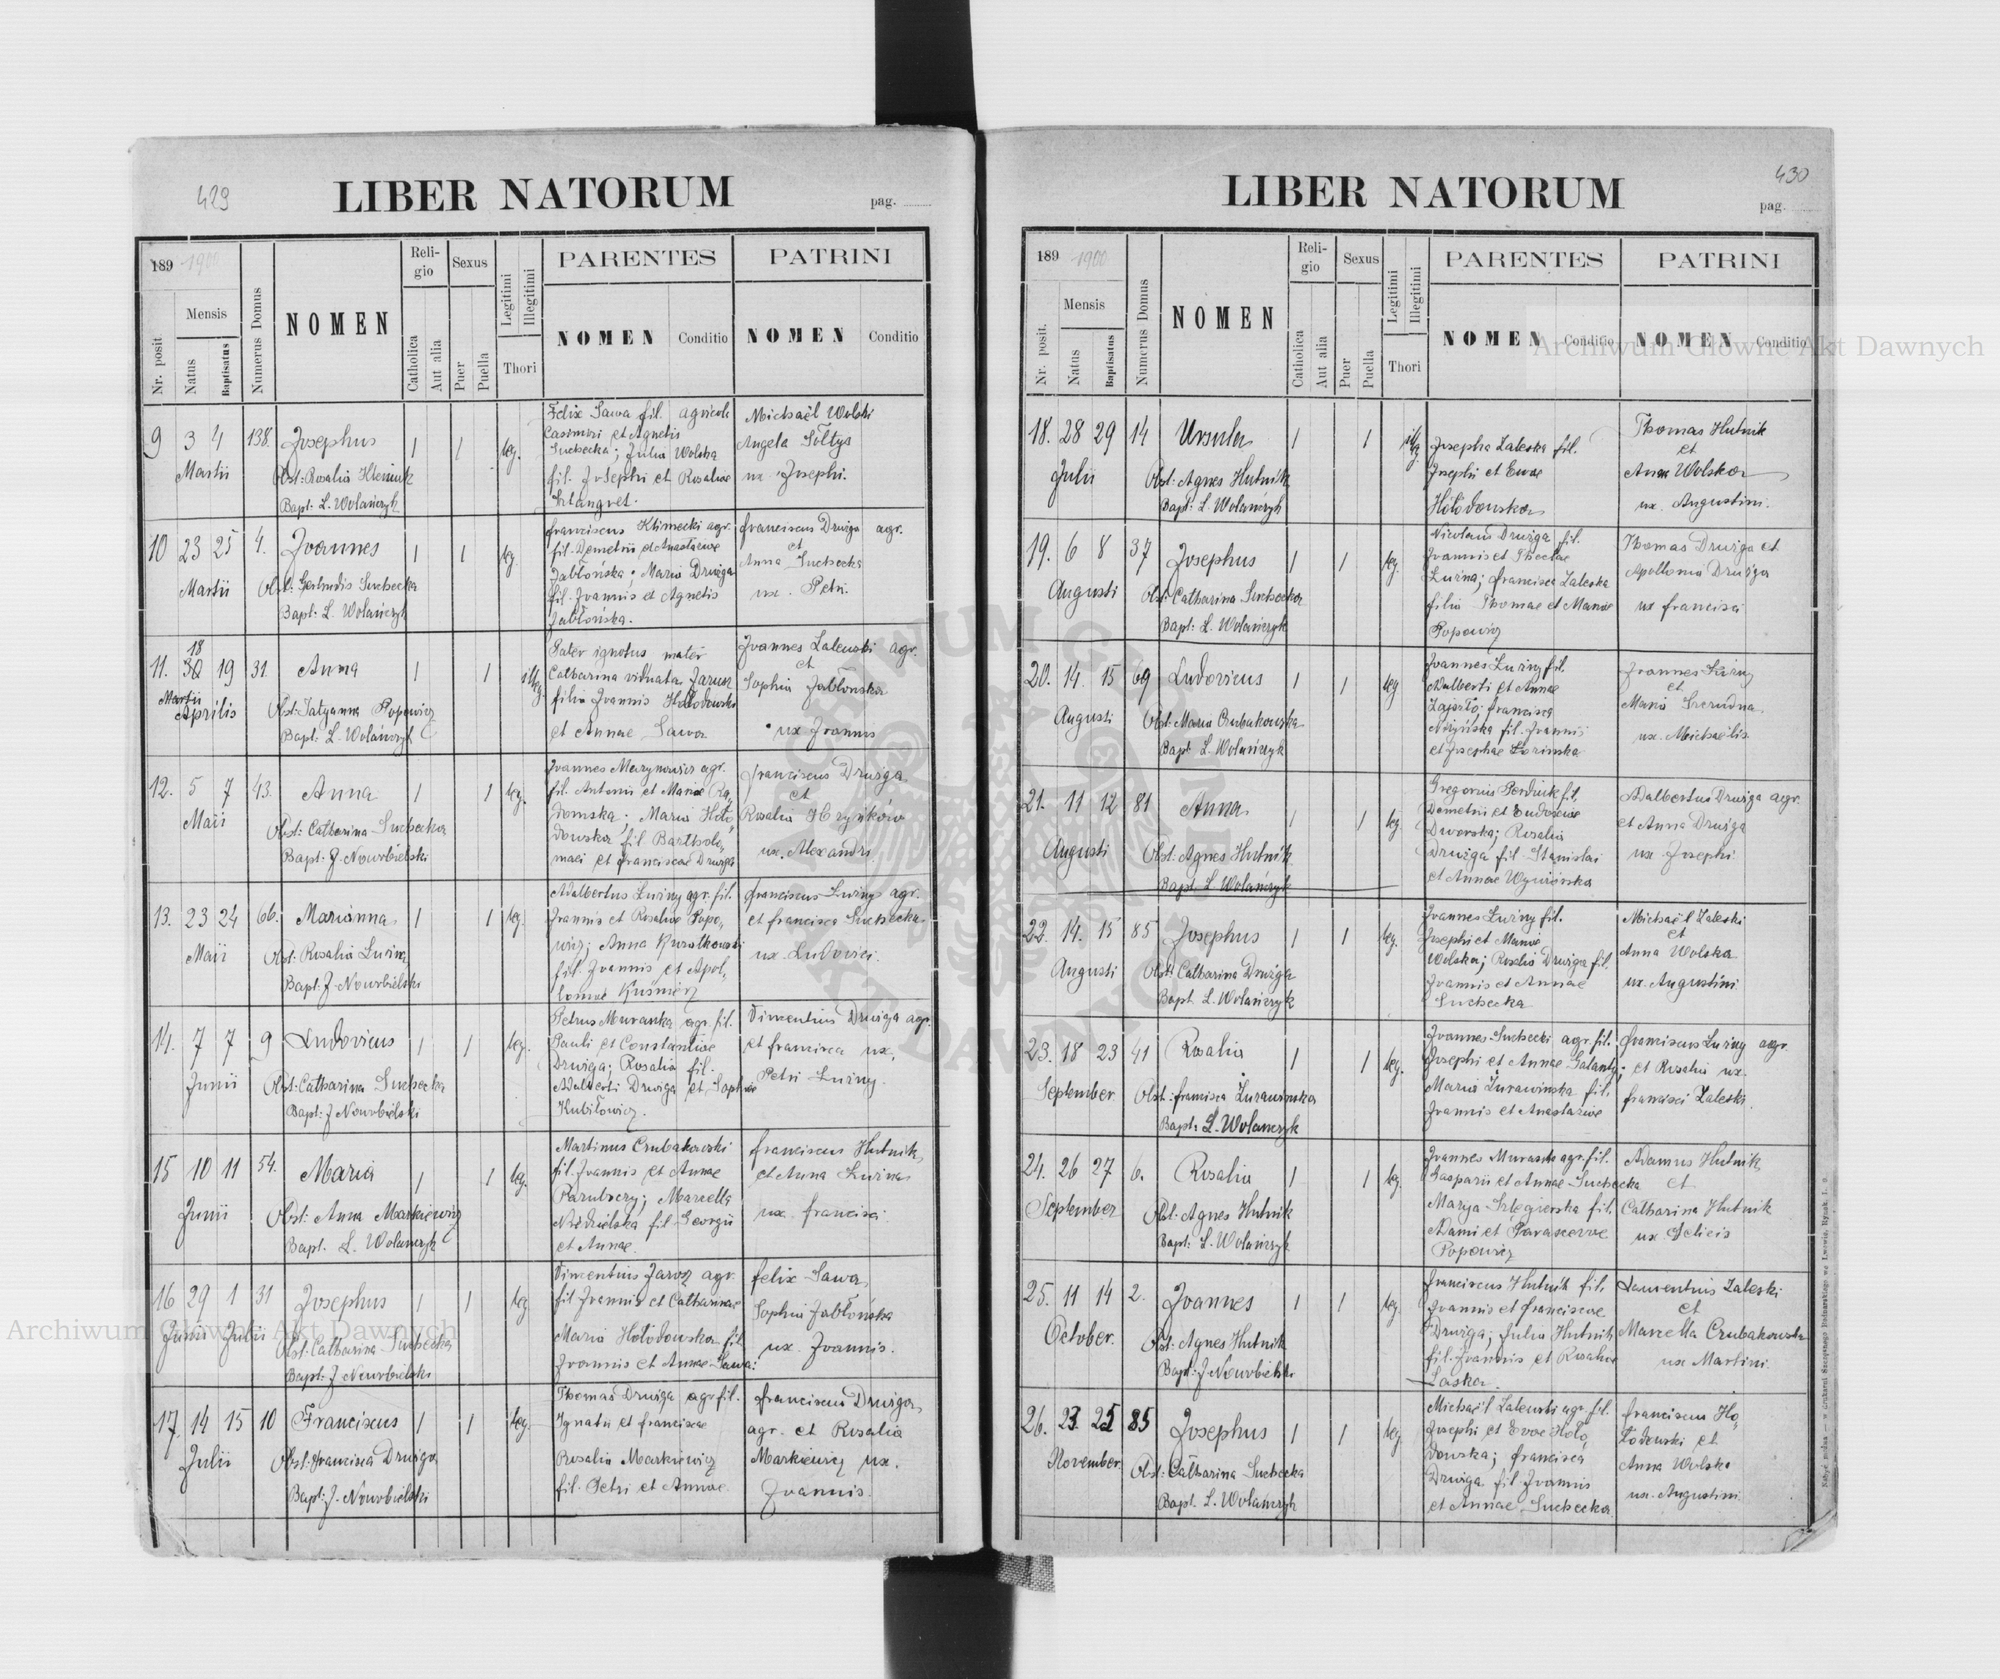 429
LIBER NATORUM
pag.
189 1900
Nr. posit.
Mensis
Natus
Baptisatus
Numerus Domus
NOMEN
Religio
Catholica
Aut alia
Sexus
Puer
Puella
Legitimi
Illegitimi
Thori
PARENTES
NOMEN Conditio
PATRINI
NOMEN Conditio
9 3 4 138. Josephus 1 1 leg.
Martii
Obst: Rosalia Klemiuk
Bapt: L. Wolańczyk
Felix Sawa fil. agricola
Casimiri et Agnetis
Suchecka; Julia Wolska
fil. Josephi et Rosaliae
Michaël Wolski
Angela Sołtys
ux. Josephi.
10 23 25 4. Joannes 1 1 leg.
Martii
Obst: Gertrudis Suchecka
Bapt: L. Wolańczyk
Franciscus Klimecki agr.
fil. Demetrii et Anastasiae
Jabłońska; Maria Druiga
fil. Joannis et Agnetis
Jabłońska.
Franciscus Druiga agr.
et
Anna Suchecka
ux. Petri.
11. 18 19 31. Anna 1 1 illeg.
Martii
Aprilis
Obst: Tatyanna Popowicz
Bapt: L. Wolańczyk
Pater ignotus mater
Catharina viduata Jarosz
filia Joannis Hołodowski
et Annae Sawa
Joannes Zaleuski agr.
et
Sophia Jabłonska
ux Joannis
12. 5 7 43. Anna 1 1 leg.
Maii
Obst: Catharina Suchecka
Bapt: J. Nowobielski
Joannes Mazynowicz agr.
fil. Antonii et Mariae
Maria Hoło
dowska fil Bartholo,
maei et Franciscae Druiga
Franciscus Druiga
et
Rosalia Hrynków
ux. Alexandri
13. 23 24 66. Marianna 1 1 leg.
Maii
Obst: Rosalia Luzina
Bapt: J. Nowobielski
Adalbertus Luziny agr. fil.
Joannis et Rosaliae Popo,
wicz; Anna
fil. Joannis et Apol,
loniae Kuśnierz
Franciscus Luziny agr.
et Francisca Suchecka
ux. Ludovici.
14. 7 7 9 Ludovicus 1 1 leg.
Junii
Obst: Catharina Suchecka
Bapt: J Nowobielski
Petrus Muranka agr. fil.
Pauli et Constantiae
Druiga; Rosalia fil.
Adalberti Druiga et Sophiae
Kubiłowicz.
Vincentius Druiga agr.
et Francisca ux.
Petri Luziny.
15 10 11 54. Maria 1 1 leg.
Junii
Obst: Anna Markiewicz
Bapt. L. Wolańczyk
Martinus Czubakowski
fil. Joannis et Annae
Marcella
fil. Georgii
et Annae.
Franciscus Hutnik
et Anna Luzina
ux. Francisci
16 29 1 31 Josephus 1 1 leg
Junii Julii
Obst: Catharina Suchecka
Bapt: J Nowobielski
Vincentius Jarosz agr.
fil Joannis et Catharinae
Maria Hołodowska fil
Joannis et Annae Sawa.
Felix Sawa
Sophia Jabłońska
ux. Joannis.
17. 14 15 10 Franciscus 1 1 leg.
Julii
Obst: Francisca Druiga
Bapt: J. Nowobielski
Thomas Druiga agr fil.
Ignatii et Franciscae
Rosalia Markiewicz
fil. Petri et Annae
Franciscus Druiga
agr. et Rosalia
Markiewicz ux.
Joannis.
430
LIBER NATORUM
pag.
189 1900
Nr. posit.
Mensis
Natus
Baptisatus
Numerus Domus
NOMEN
Religio
Catholica
Aut alia
Sexus
Puer
Puella
Legitimi
Illegitimi
Thori
PARENTES
NOMEN Conditio
PATRINI
NOMEN Conditio
18. 28 29 14 Ursula 1 1 illeg.
Julii
Obst: Agnes Hutnik
Bapt: L. Wolańczyk
Josepha Zaleska fil.
Josephi et Evae
Hołodowska
Thomas Hutnik
et
Anna Wolska
ux. Augustini.
19. 6 8 37 Josephus 1 1 leg.
Augusti
Obst: Catharina Suchecka
Bapt: L. Wolańczyk
Nicolaus Druiga fil.
Joannis et Theclae
Luzina; Francisca Zaleska
filia Thomae et Mariae
Popowicz
Thomas Druiga et
Apollonia Druiga
ux Francisci
20. 14. 15 69 Ludovicus 1 1 leg
Augusti
Obst: Maria Czubakowska
Bapt L. Wolańczyk
Joannes Luziny fil.
Adalberti et Annae
Francisca
fil. Joannis
et Josephae
Joannes Luziny
et
Maria
ux. Michaëlis
21. 11 12 81 Anna 1 1 leg.
Augusti
Obst: Agnes Hutnik
Bapt L. Wolańczyk
Gregorius fil.
Demetrii et Eudoxiae
Dworska; Rosalia
Druiga fil. Stanislai
et Annae
Adalbertus Druiga agr.
et Anna Druiga
ux. Josephi.
22. 14. 15 85 Josephus 1 1 leg.
Augusti
Obst: Catharina Druiga
Bapt L. Wolańczyk
Joannes Luziny fil.
Josephi et Mariae
Wolska; Rosalia Druiga fil.
Joannis et Annae
Suchecka
Michaël Zaleski
et
Anna Wolska
ux. Augustini.
23. 18 23 41 Rosalia 1 1 leg.
September
Obst: Francisca Żurawinska
Bapt: L. Wolańczyk
Joannes Suchecki agr. fil.
Josephi et Annae Galanty;
Maria Żurawinska fil.
Joannis et Anastasiae
Franciscus Luziny agr.
et Rosalia ux.
Francisci Zaleski.
24. 26 27 6. Rosalia 1 1 leg.
September
Obst: Agnes Hutnik
Bapt: L. Wolańczyk
Joannes Muraszka agr. fil.
Gasparii et Annae Suchecka
Marya fil.
Adami et Parascevae
Popowicz
Adamus Hutnik
et
Catharina Hutnik
ux. Felicis
25. 11 14 2. Joannes 1 1 leg.
October.
Obst: Agnes Hutnik
Bapt: J. Nowobielski
Franciscus Hutnik fil.
Joannis et Franciscae
Druiga; Julia Hutnik
fil. Joannis et Rosaliae
Laska.
Laurentius Zaleski
et
Marcella Czubakowska
ux Martini.
26. 23. 25 85 Josephus 1 1 leg
November.
Obst: Catharina Suchecka
Bapt. L. Wolańczyk
Michaël Zaleuski agr. fil.
Josephi et Evae Hoło,
dowska; Francisca
Druiga fil. Joannis
et Annae Suchecka
Franciscus Ho,
łodowski et
Anna Wolska
ux. Augustini.
Archiwum Główne Akt Dawnych
Archiwum Główne Akt Dawnych
ARCHIWUM GŁÓWNE AKT DAWNYCH